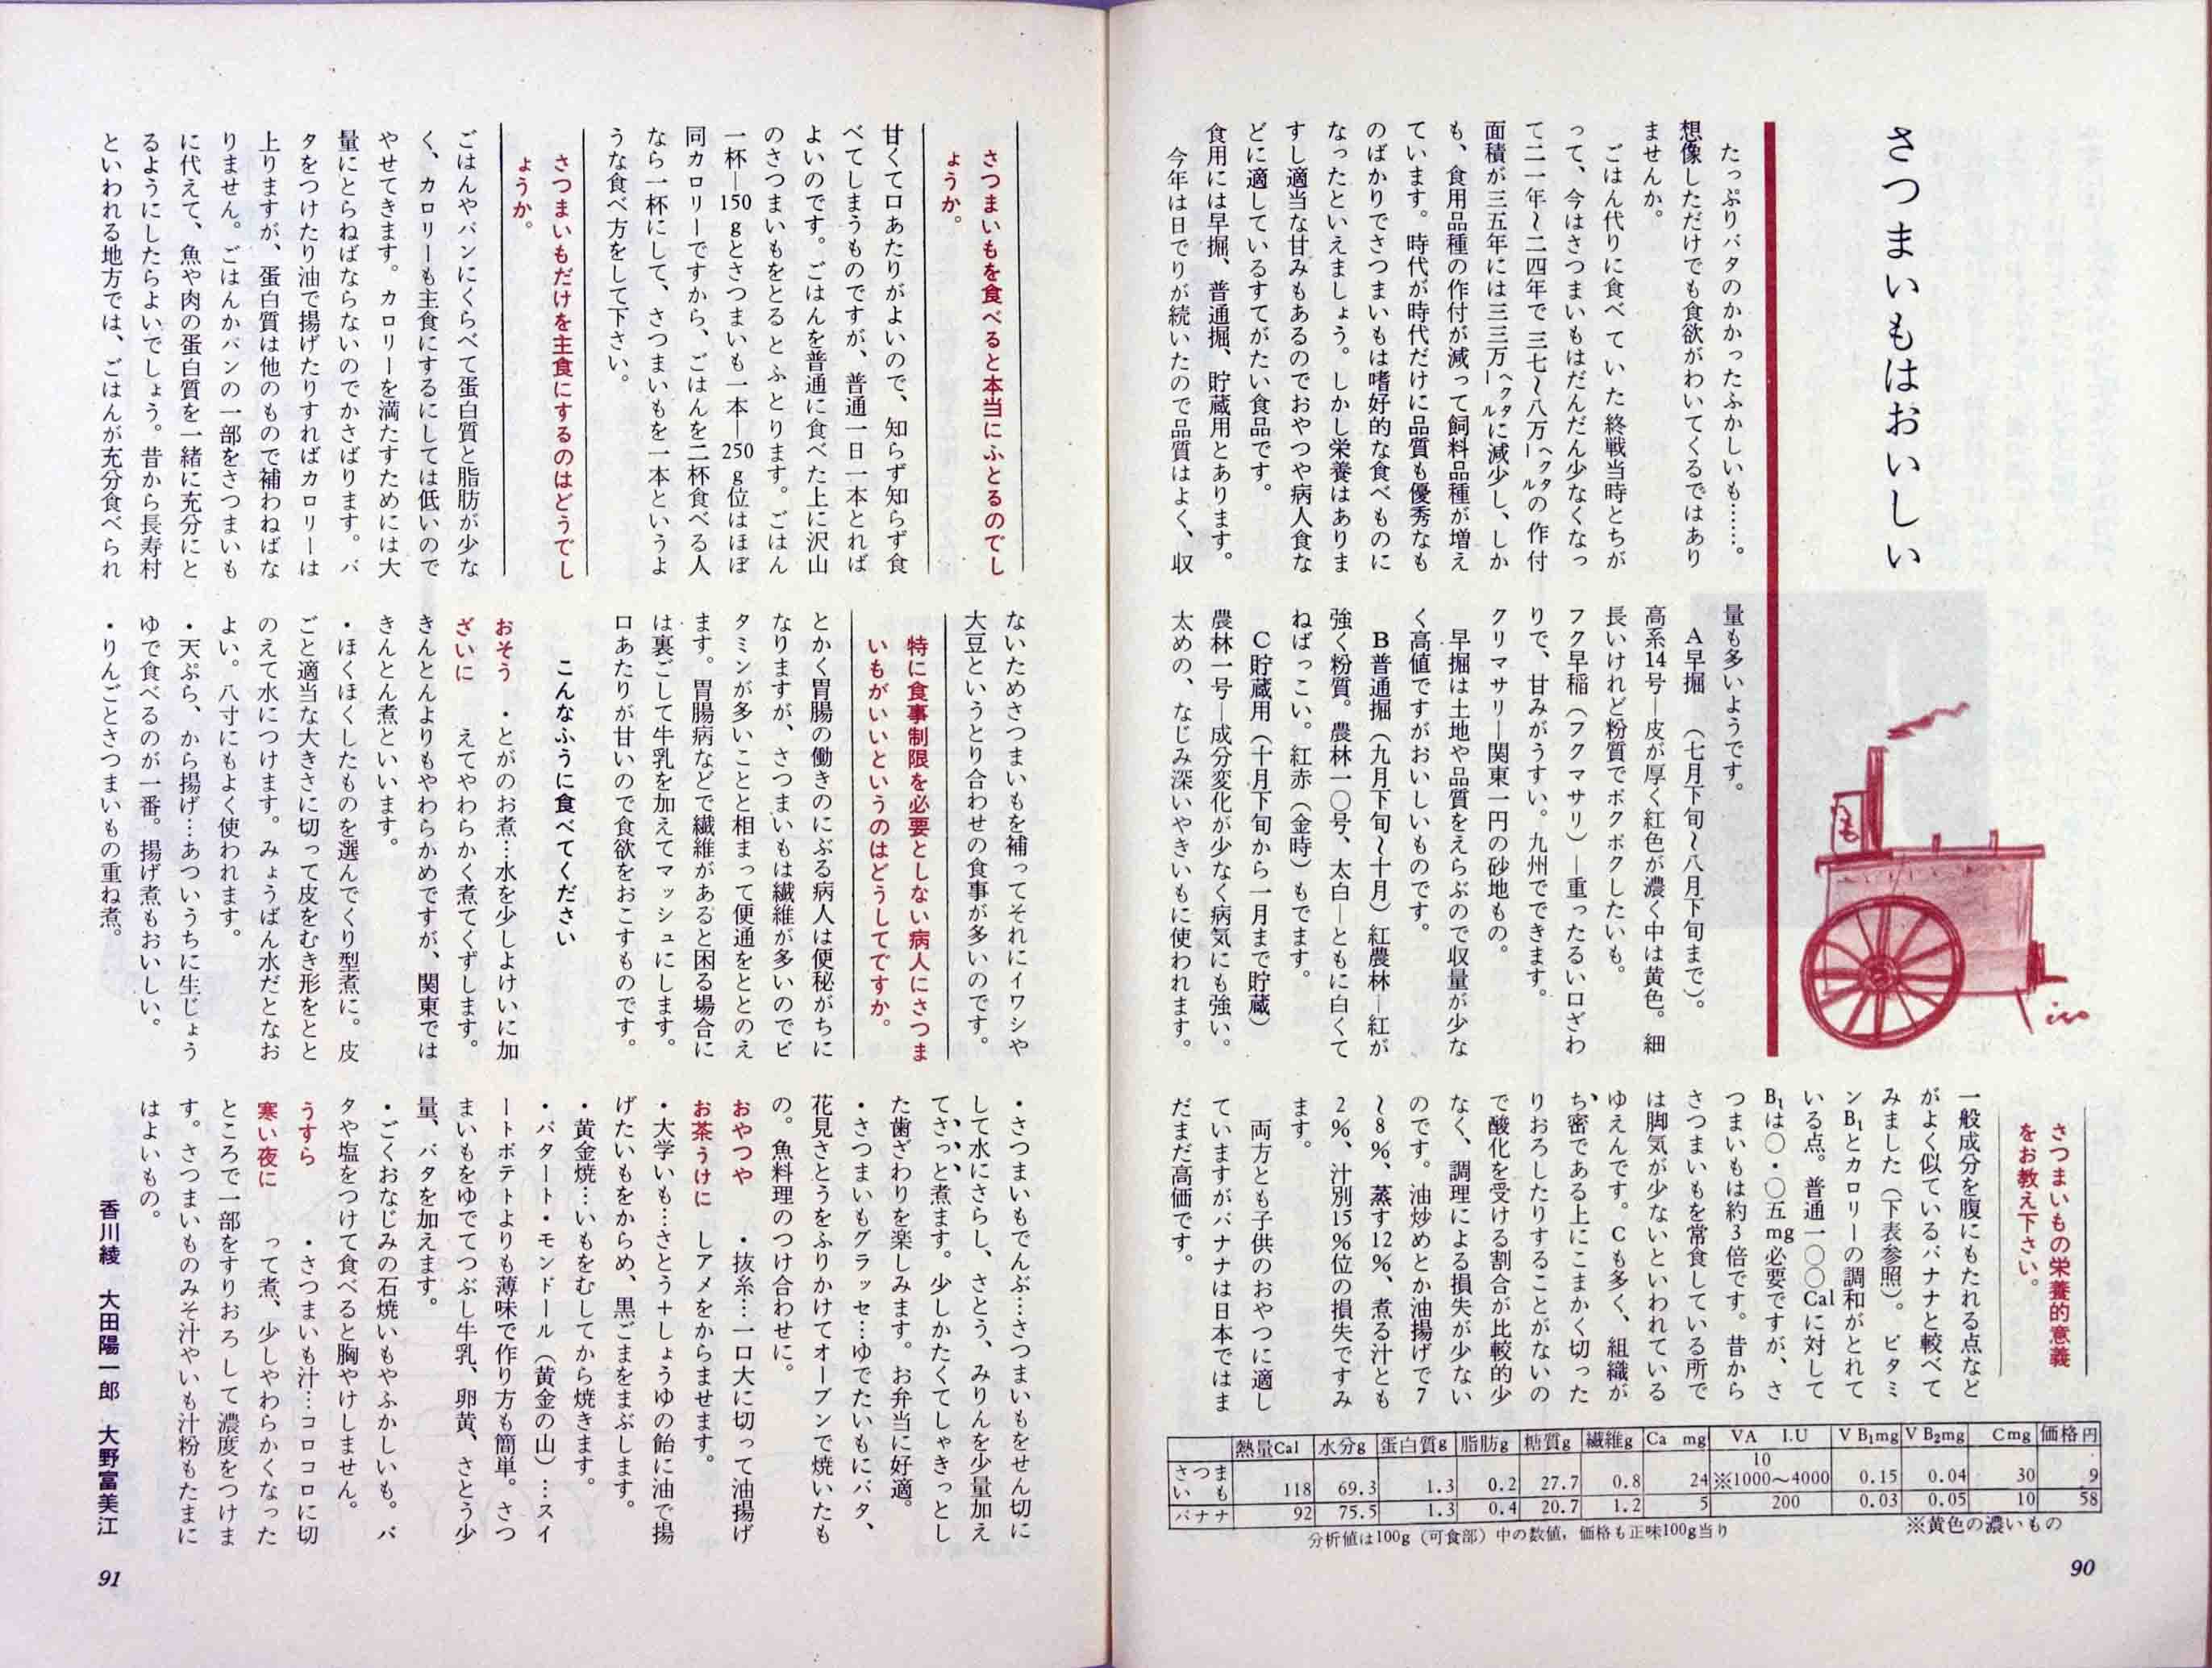 さつまいもはおいしい
たっぷりバタのかかったふかしいも……。
想像しただけでも食欲がわいてくるではあり
ませんか。
ごはん代りに食べていた終戦当時とちが
って、今はさつまいもはだんだん少なくなっ
て二一年～二四年で三七～八万ヘクタールの作付
面積が三五年には三三万ヘクタールに減少し、しか
も、食用品種の作付が減って飼料品種が増え
ています。時代が時代だけに品質も優秀なも
のばかりでさつまいもは嗜好的な食べものに
なったといえましょう。しかし栄養はありま
すし適当な甘みもあるのでおやつや病人食な
どに適しているすてがたい食品です。
食用には早掘、普通掘、貯蔵用とあります。
今年は日でりが続いたので品質はよく、収
量も多いようです。
A早掘 （七月下旬～八月下旬まで）。
高系14号—皮が厚く紅色が濃く中は黄色。細
長いけれど粉質でポクポクしたいも。
フク早稲（フクマサリ）—重ったるい口ざわ
りで、甘みがうすい。九州でできます。
クリマサリ—関東一円の砂地もの。
早掘は土地や品質をえらぶので収量が少な
く高値ですがおいしいものです。
B普通掘（九月下旬～十月）紅農林—紅が
強く粉質。農林一〇号、太白—ともに白くて
ねばっこい。紅赤（金時）もでます。
C貯蔵用（十月下旬から一月まで貯蔵）
農林一号—成分変化が少なく病気にも強い。
太めの、なじみ深いやきいもに使われます。
さつまいもの栄養的意義
をお教え下さい。
一般成分を腹にもたれる点など
がよく似ているバナナと較べて
みました（下表参照）。ビタミ
ンB₁とカロリーの調和がとれて
いる点。普通一〇〇Calに対して
B₁は〇・〇五mg必要ですが、さ
つまいもは約3倍です。昔から
さつまいもを常食している所で
は脚気が少ないといわれている
ゆえんです。Cも多く、組織が
ち密である上にこまかく切った
りおろしたりすることがないの
で酸化を受ける割合が比較的少
なく、調理による損失が少ない
のです。油炒めとか油揚げで7
～8%、蒸す12%、煮る汁とも
2%、汁別15%位の損失ですみ
ます。
両方とも子供のおやつに適し
ていますがバナナは日本ではま
だまだ高価です。
熱量Cal 水分g 蛋白質g 脂肪g 糖質g 繊維g Ca mg VA I.U V B₁mg V B₂mg Cmg 価格円
さつまいも 118 69.3 1.3 0.2 27.7 0.8 24 10 ※1000～4000 0.15 0.04 30 9
バナナ 92 75.5 1.3 0.4 20.7 1.2 5 200 0.03 0.05 10 58
分析値は100g（可食部）中の数値，価格も正味100g当り
※黄色の濃いもの
90
さつまいもを食べると本当にふとるのでし
ょうか。
甘くて口あたりがよいので、知らず知らず食
べてしまうものですが、普通一日一本とれば
よいのです。ごはんを普通に食べた上に沢山
のさつまいもをとるとふとります。ごはん
一杯—150gとさつまいも一本—250g位はほぼ
同カロリーですから、ごはんを二杯食べる人
なら一杯にして、さつまいもを一本というよ
うな食べ方をして下さい。
さつまいもだけを主食にするのはどうでし
ょうか。
ごはんやパンにくらべて蛋白質と脂肪が少な
く、カロリーも主食にするにしては低いので
やせてきます。カロリーを満たすためには大
量にとらねばならないのでかさばります。バ
タをつけたり油で揚げたりすればカロリーは
上りますが、蛋白質は他のもので補わねばな
りません。ごはんかパンの一部をさつまいも
に代えて、魚や肉の蛋白質を一緒に充分にと
るようにしたらよいでしょう。昔から長寿村
といわれる地方では、ごはんが充分食べられ
ないためさつまいもを補ってそれにイワシや
大豆というとり合わせの食事が多いのです。
特に食事制限を必要としない病人にさつま
いもがいいというのはどうしてですか。
とかく胃腸の働きのにぶる病人は便秘がちに
なりますが、さつまいもは繊維が多いのでビ
タミンが多いことと相まって便通をととのえ
ます。胃腸病などで繊維があると困る場合に
は裏ごして牛乳を加えてマッシュにします。
口あたりが甘いので食欲をおこすものです。
こんなふうに食べてください
おそう
ざいに
・とがのお煮…水を少しよけいに加
えてやわらかく煮てくずします。
きんとんよりもやわらかめですが、関東では
きんとん煮といいます。
・ほくほくしたものを選んでくり型煮に。皮
ごと適当な大きさに切って皮をむき形をとと
のえて水につけます。みょうばん水だとなお
よい。八寸にもよく使われます。
・天ぷら、から揚げ…あついうちに生じょう
ゆで食べるのが一番。揚げ煮もおいしい。
・りんごとさつまいもの重ね煮。
・さつまいもでんぶ…さつまいもをせん切に
して水にさらし、さとう、みりんを少量加え
てさっと煮ます。少しかたくてしゃきっとし
た歯ざわりを楽しみます。お弁当に好適。
・さつまいもグラッセ…ゆでたいもにバタ、
花見さとうをふりかけてオーブンで焼いたも
の。魚料理のつけ合わせに。
おやつや
お茶うけに
・抜糸…一口大に切って油揚げ
しアメをからませます。
・大学いも…さとう＋しょうゆの飴に油で揚
げたいもをからめ、黒ごまをまぶします。
・黄金焼…いもをむしてから焼きます。
・バタート・モンドール（黄金の山）…スイ
ートポテトよりも薄味で作り方も簡単。さつ
まいもをゆでてつぶし牛乳、卵黄、さとう少
量、バタを加えます。
・ごくおなじみの石焼いもやふかしいも。バ
タや塩をつけて食べると胸やけしません。
うすら
寒い夜に
・さつまいも汁…コロコロに切
って煮、少しやわらかくなった
ところで一部をすりおろして濃度をつけま
す。さつまいものみそ汁やいも汁粉もたまに
はよいもの。
香川綾 大田陽一郎 大野富美江
91